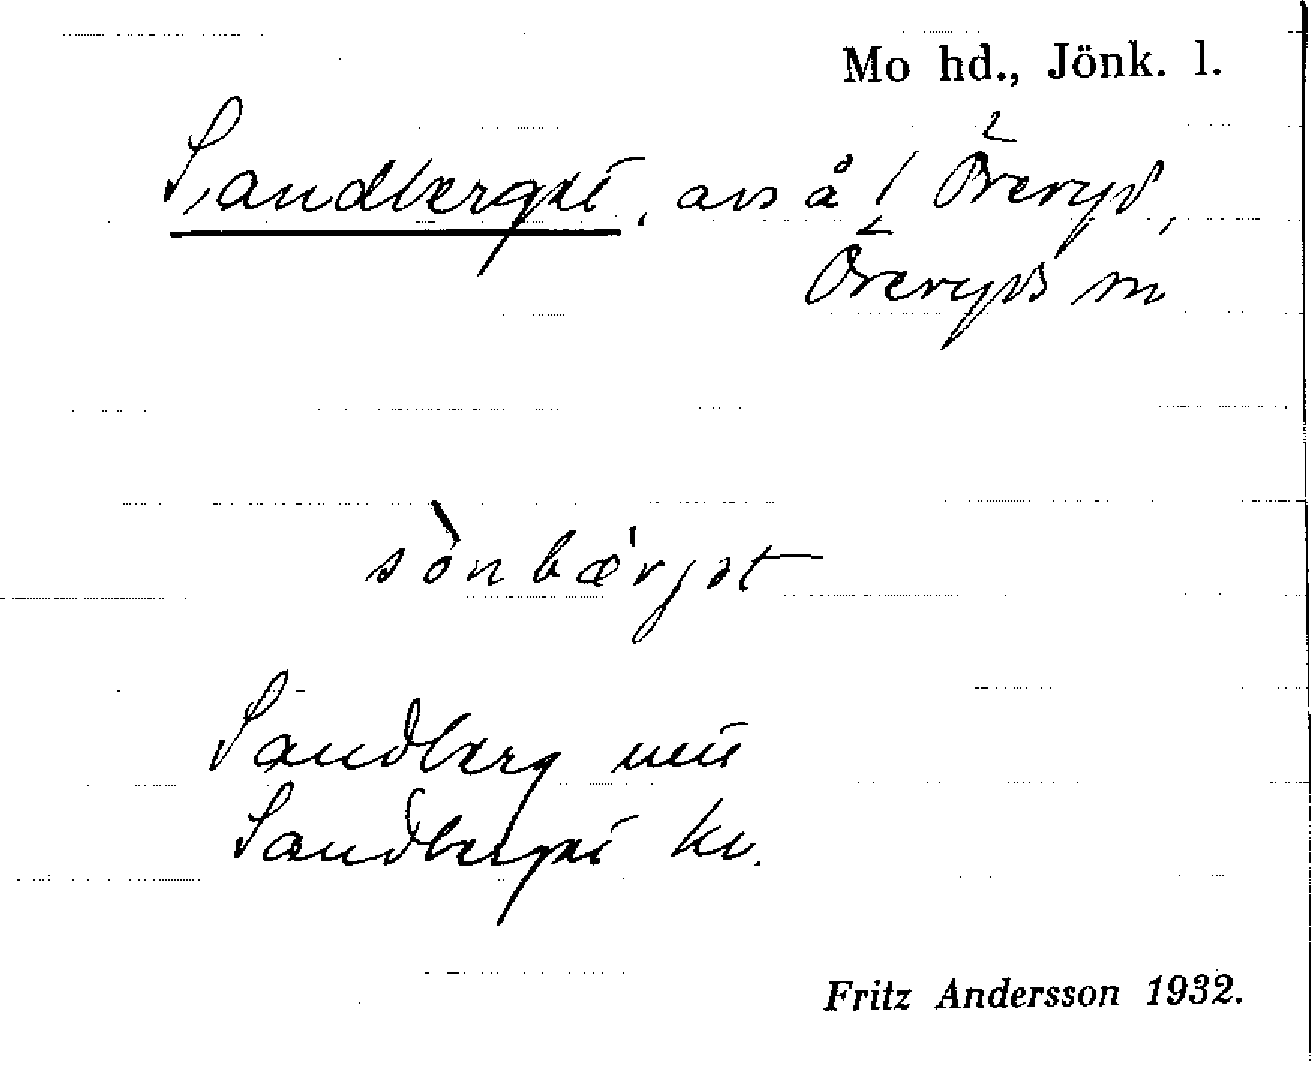 Mo hd., Jönk. l.
Sandberget, avs å 1 Öreryd,
Öreryds sn
sònbæ'rjət
Sandberg
Sandberget kv.
Fritz Andersson 1932.